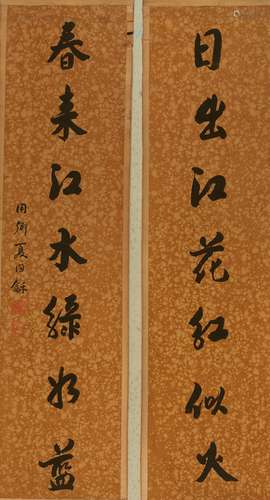 日出江花红似火
春来江水绿如蓝
夏同龢